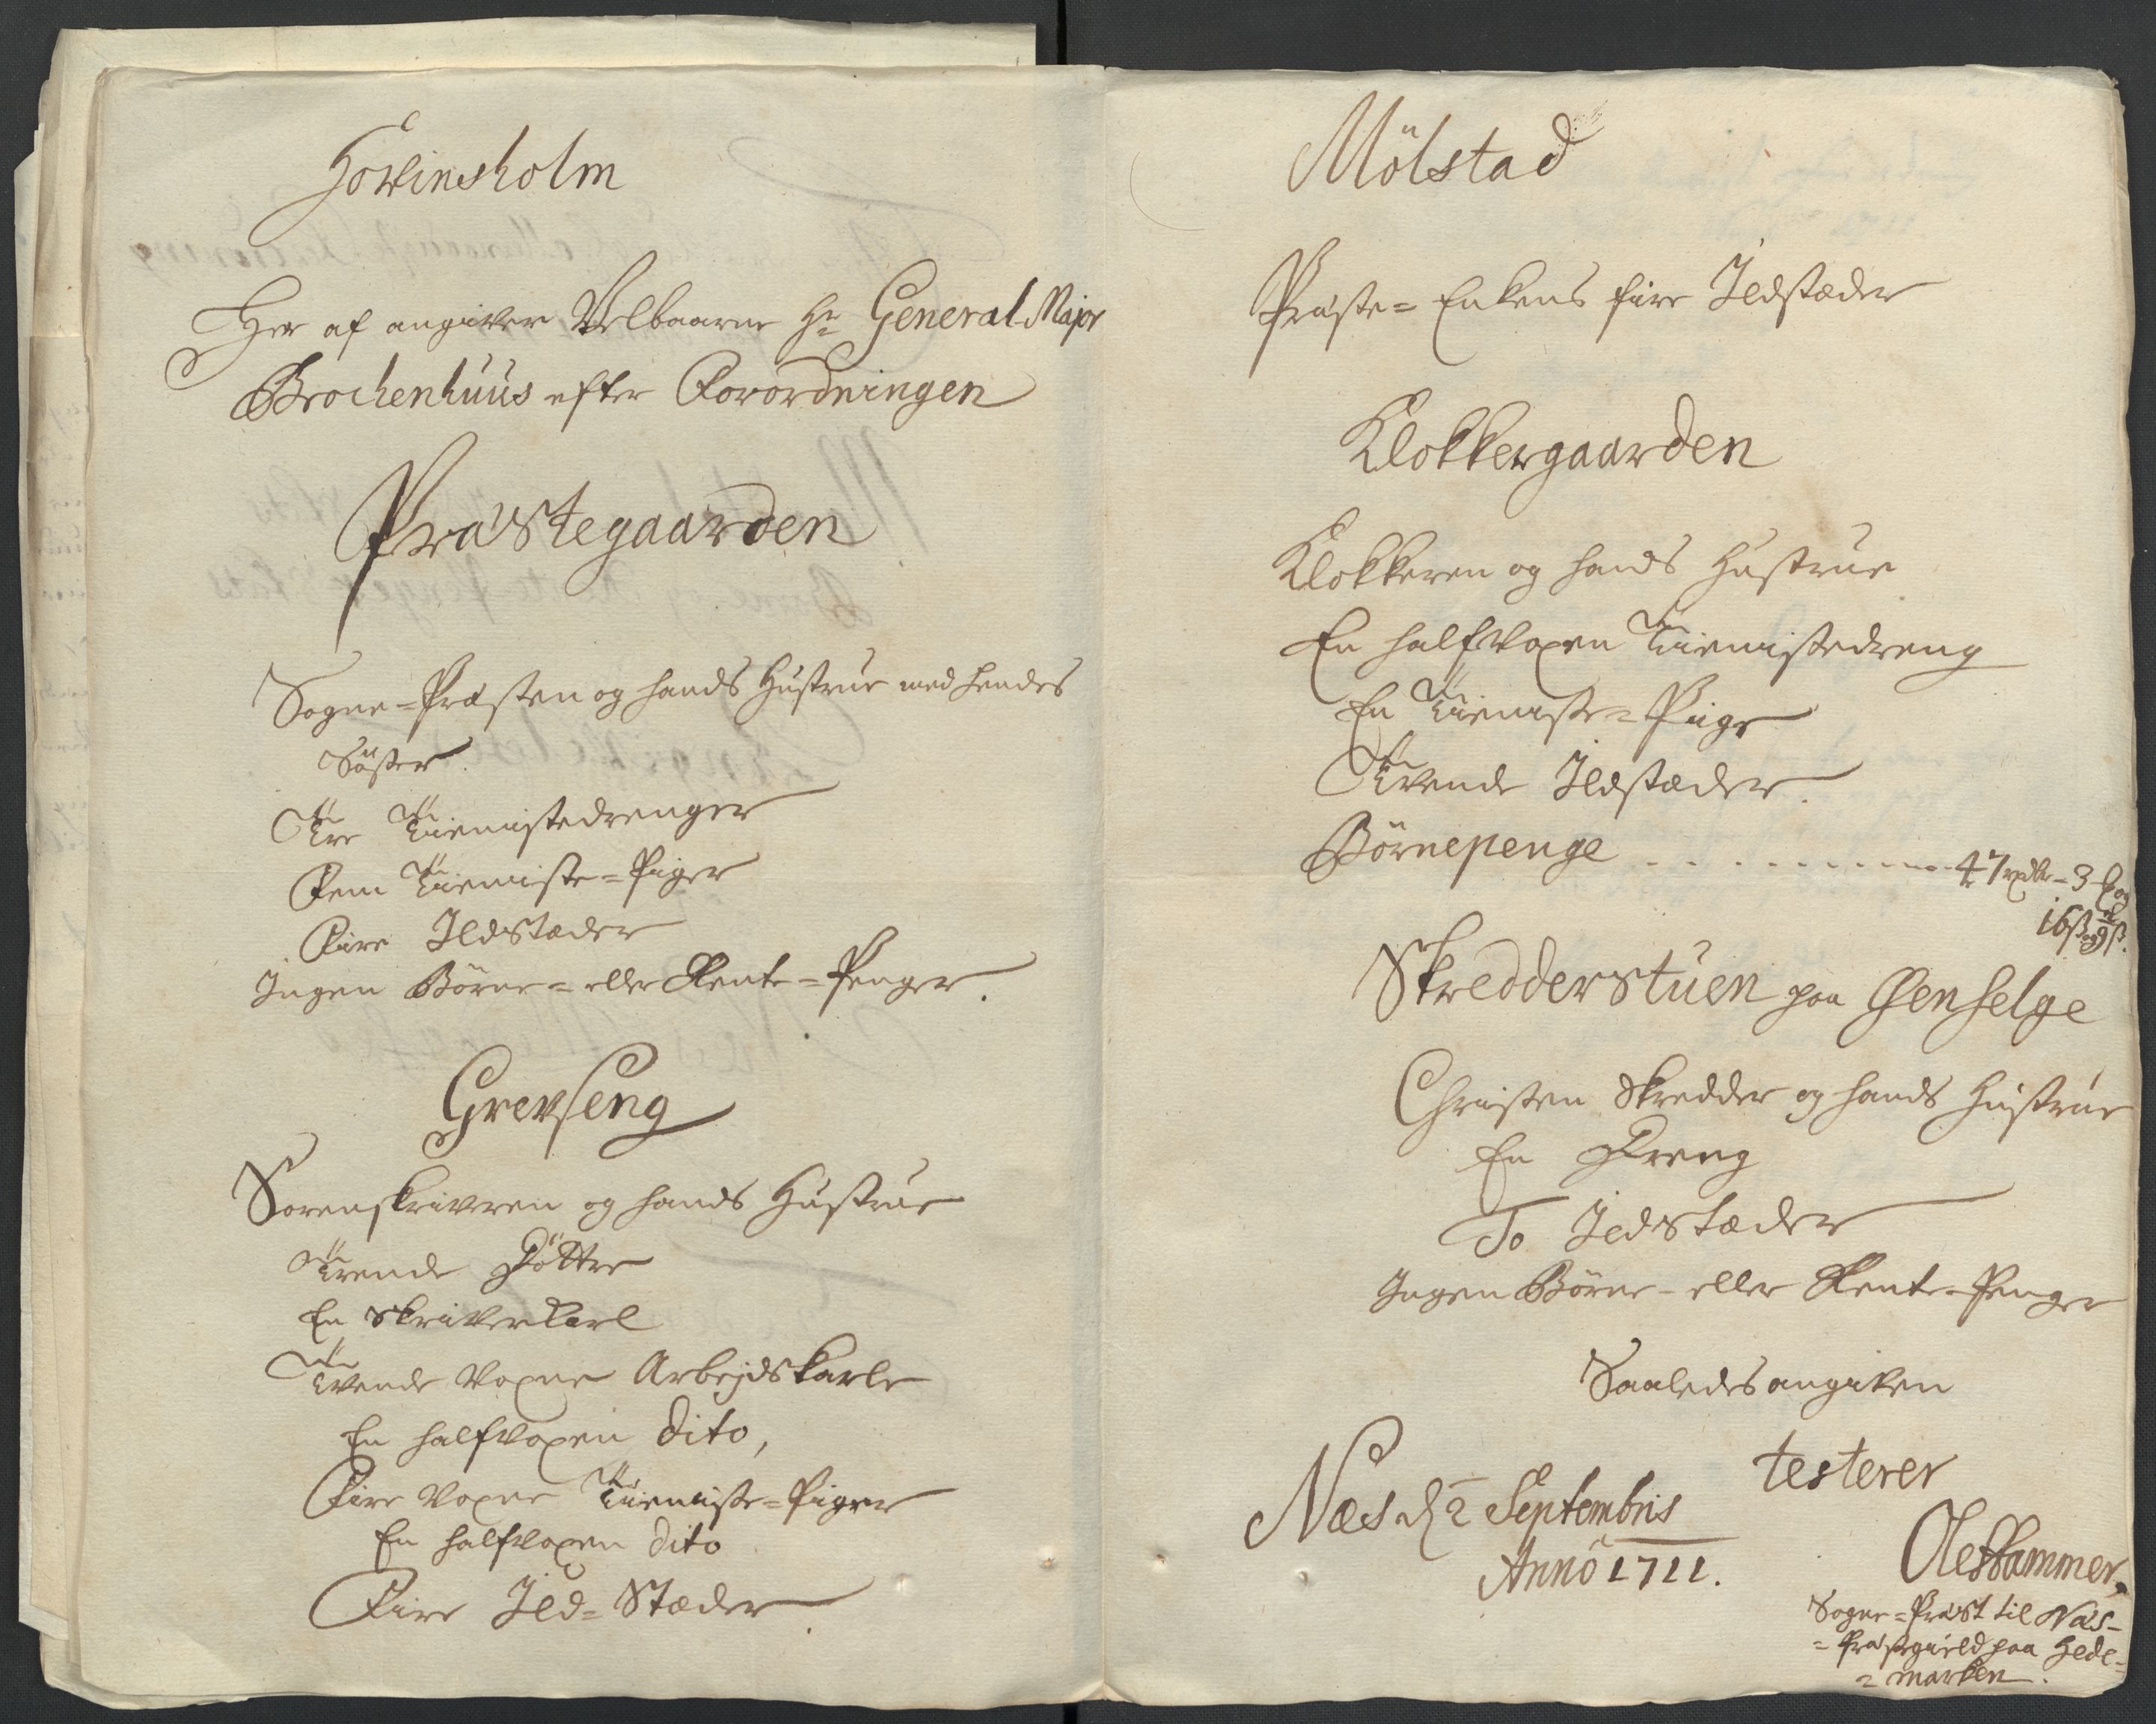 Hovinsholm
Her af angiver Velbaarne Hr General-Major
Brochenhuus efter Forordningen
Præstegaarden
Sogne-Præsten og hands Hustrue med hendes
Söster.
Tre Tienistedrenger
Fem Tieniste-Piger
Fire Ildstæder
Ingen Börne- eller Rente-Penger.
Grevseng
Sorenskriveren og hands Hustrue
Trende Döttre
En Skriverkarl
Tvende voxne Arbejdskarle
En halfvoxen dito,
Fire voxne Tieniste-Piger
En halfvoxen dito
Fire Ild-Stæder.
Mölstad
Præste-Enkens fire Ildstæder
Klokkergaarden
Klokkeren og hands Hustrue
En halfvoxen Tienistedreng
En Tieniste-Pige
Tvende Ildstæder.
Börnepenge 47 rdlr - 3
16 ß
Skredderstuen paa Henselge
Christen Skredder og hands Hustrue
En Dreng
To Ildstæder
Ingen Börne- eller Rente-Penger
Saaledes angiven
testerer
Næs d 2 Septembris
Anno 1711.
Ole Hammer,
Sogne-Præst til Næs-
=Præstegield paa Hede-
=marken.